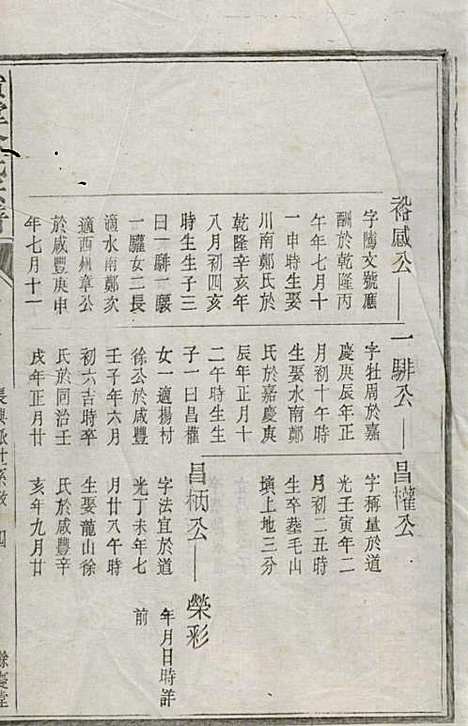 裕感公
字騰文號應
酬於乾隆丙
午年七月十
一申時生娶
川南鄭氏於
乾隆辛亥年
八月初四亥
時生生子三
曰一騑一
一驩女二長
適水南鄭次
適西州章公
於咸豐庚申
年七月十一
一騑公
字牡周於嘉
慶庚辰年正
月初十午時
生娶水南鄭
氏於嘉慶庚
辰年正月十
二午時生生
子一曰昌權
女一適楊村
徐公於咸豐
壬子年六月
初六吉時卒
氏於同治壬
戌年正月廿
昌權公
字稱量於道
光壬寅年二
月初二丑時
生卒塟毛山
墳上地三分
昌柄公
字法宜於道
光丁未年七
月廿八午時
生娶龍山徐
氏於咸豐辛
亥年九月廿
榮彩
年月日時詳
前
四